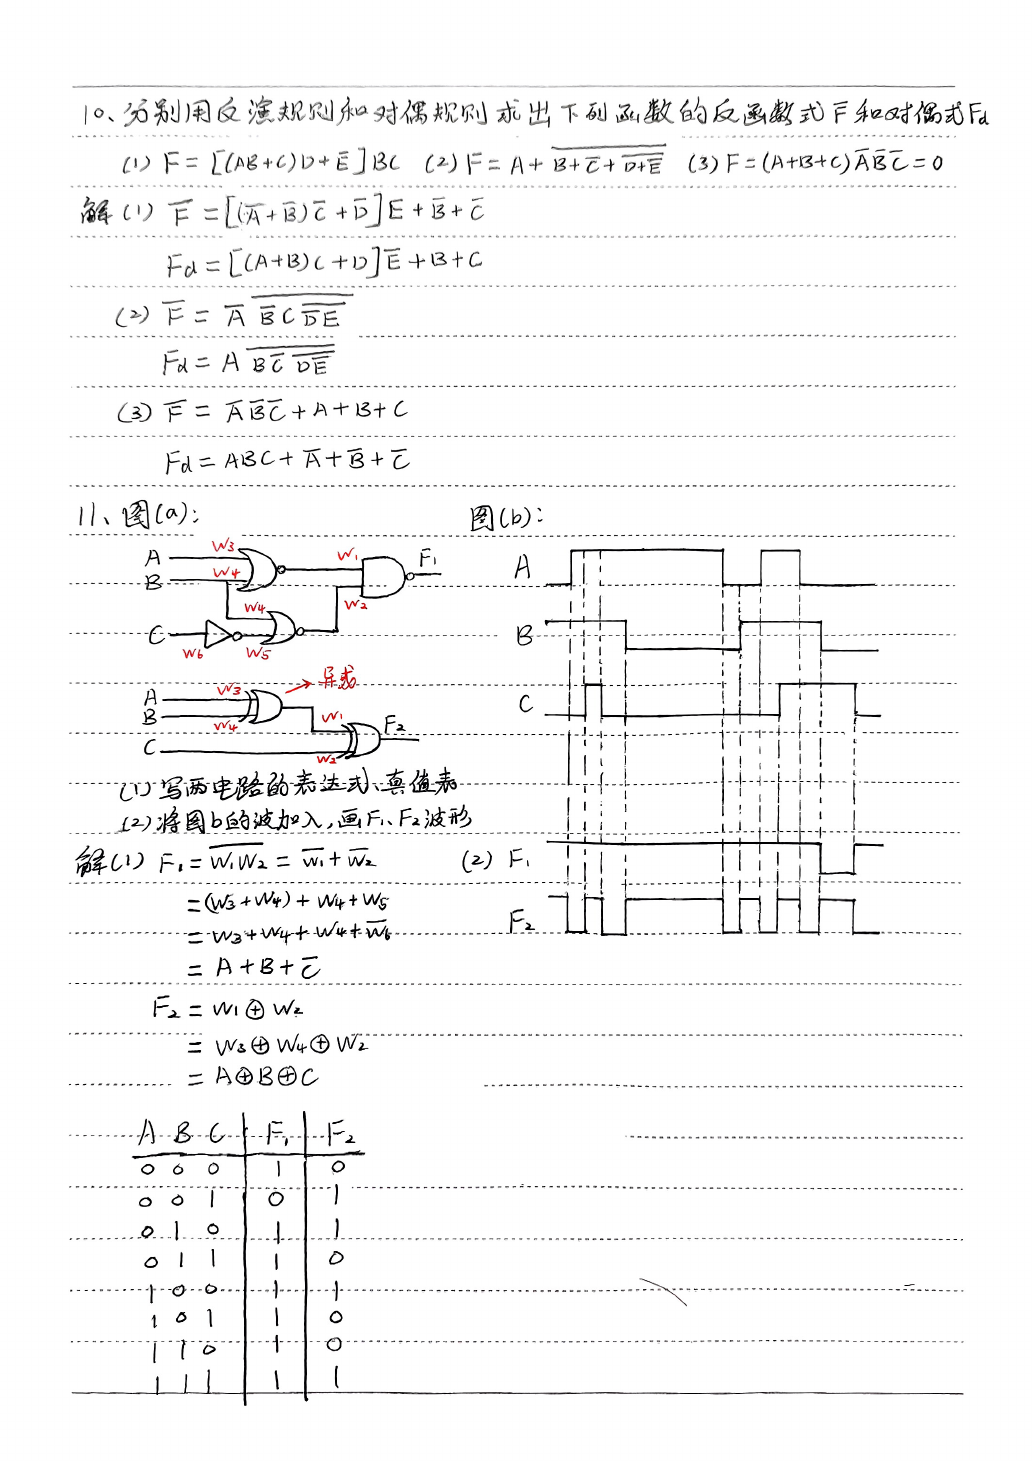 10、分别用反演规则和对偶规则求出下列函数的反函数式F̅和对偶式Fd
(1) F=[(AB+C)D+E̅]BC (2) F=A+B̅+̅C̅̅+̅D̅̅+̅E̅̅ (3) F=(A+B+C)A̅B̅C̅=0
解(1) F̅=[(A̅+B̅)C̅+D̅]E+B̅+C̅
Fd=[(A+B)C+D]E̅+B+C
(2) F̅=A̅ \overline{B̅ C \overline{D̅ E̅}}
Fd=A \overline{B C̅ \overline{D E̅}}
(3) F̅=A̅B̅C̅+A+B+C
Fd=ABC+A̅+B̅+C̅
11、图(a):
图(b):
A W3 W1 F1
B W4 W2
W4
C W6 W5
A W3 异或
B W4 W1 F2
C W2
A
B
C
(1)写两电路的表达式、真值表
(2)将图b的波加入,画F1、F2波形
解(1) F1=\overline{W1W2}=W̅1+W̅2
=(W3+W4)+W4+W5
=W3+W4+W4+W̅6
=A+B+C̅
F2=W1⊕W2
=W3⊕W4⊕W2
=A⊕B⊕C
(2) F1
F2
A B C F1 F2
0 0 0 1 0
0 0 1 0 1
0 1 0 1 1
0 1 1 1 0
1 0 0 1 1
1 0 1 1 0
1 1 0 1 0
1 1 1 1 1